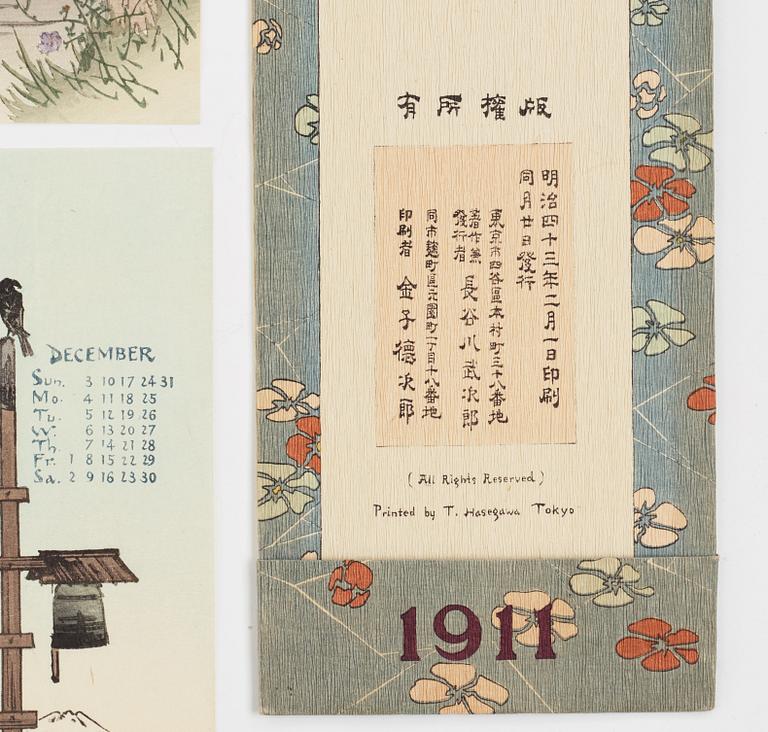 DECEMBER
Sun. 3 10 17 24 31
Mo. 4 11 18 25
Tu. 5 12 19 26
W. 6 13 20 27
Th. 7 14 21 28
Fr. 1 8 15 22 29
Sa. 2 9 16 23 30
有所權版
明治四十三年二月一日印刷
同月廿日發行
東京市四谷區本村町三十八番地
著作兼
發行者 長谷川武次郎
同市麹町區元園町一丁目十八番地
印刷者 金子德次郎
( All Rights Reserved )
Printed by T. Hasegawa Tokyo
1911